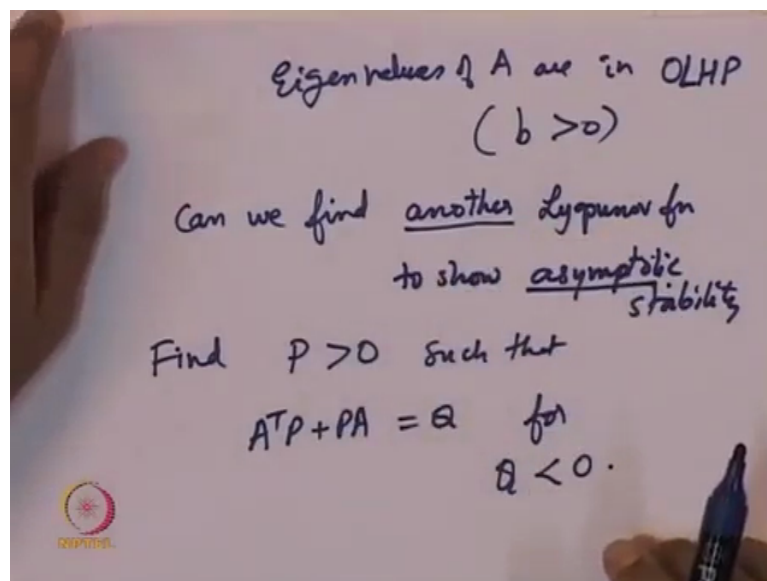 Eigenvalues of A are in OLHP
(b >0)
Can we find another Lyapunov fn
to show asymptotic
stability
Find P >0 such that
AᵀP+PA = Q for
Q < 0.
NPTEL